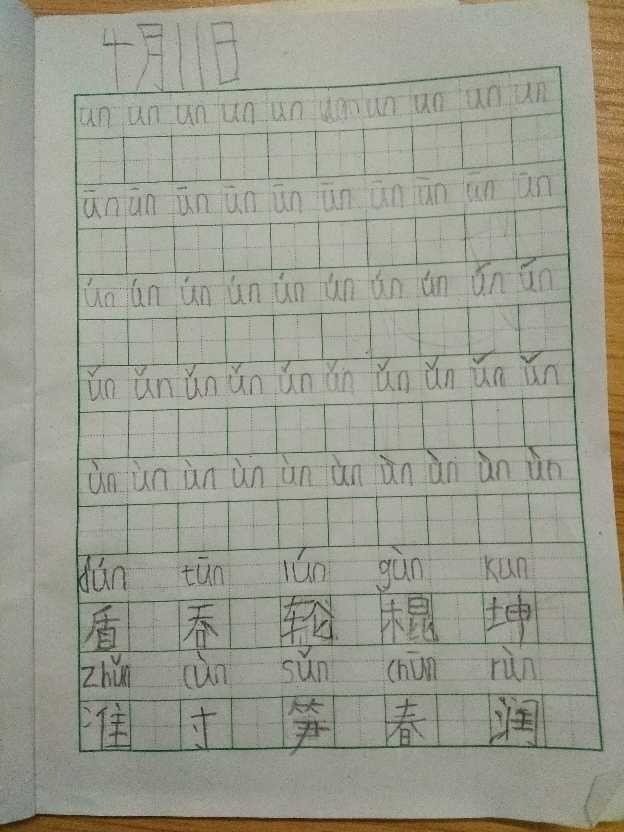 4月11日
un un un un un un un un un un
ūn ūn ūn ūn ūn ūn ūn ūn ūn ūn
ún ún ún ún ún ún ún ún ǔn ǔn
ǔn ǔn ǔn ǔn ǔn ǔn ǔn ǔn ǔn ǔn
ùn ùn ùn ùn ùn ùn ùn ùn ùn ùn
dún tūn lún gùn kun
盾 吞 轮 棍 坤
zhǔn cùn sǔn chūn rùn
准 寸 笋 春 润